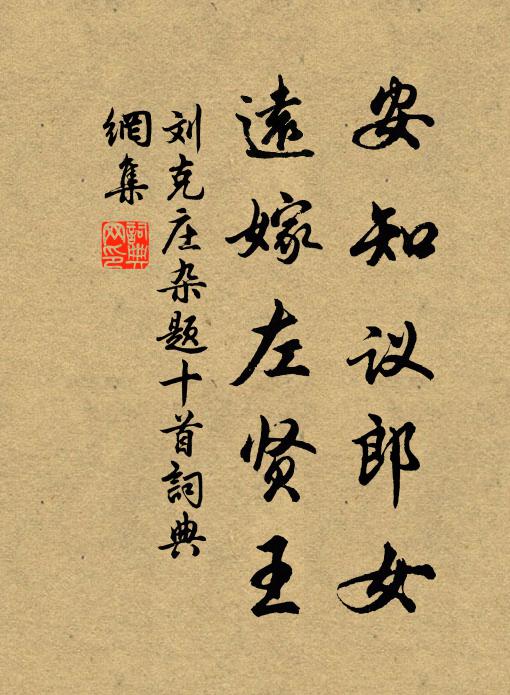 安知议郎女
遠嫁左贤王
刘克庄杂题十首詞典
網集
詞典
网印